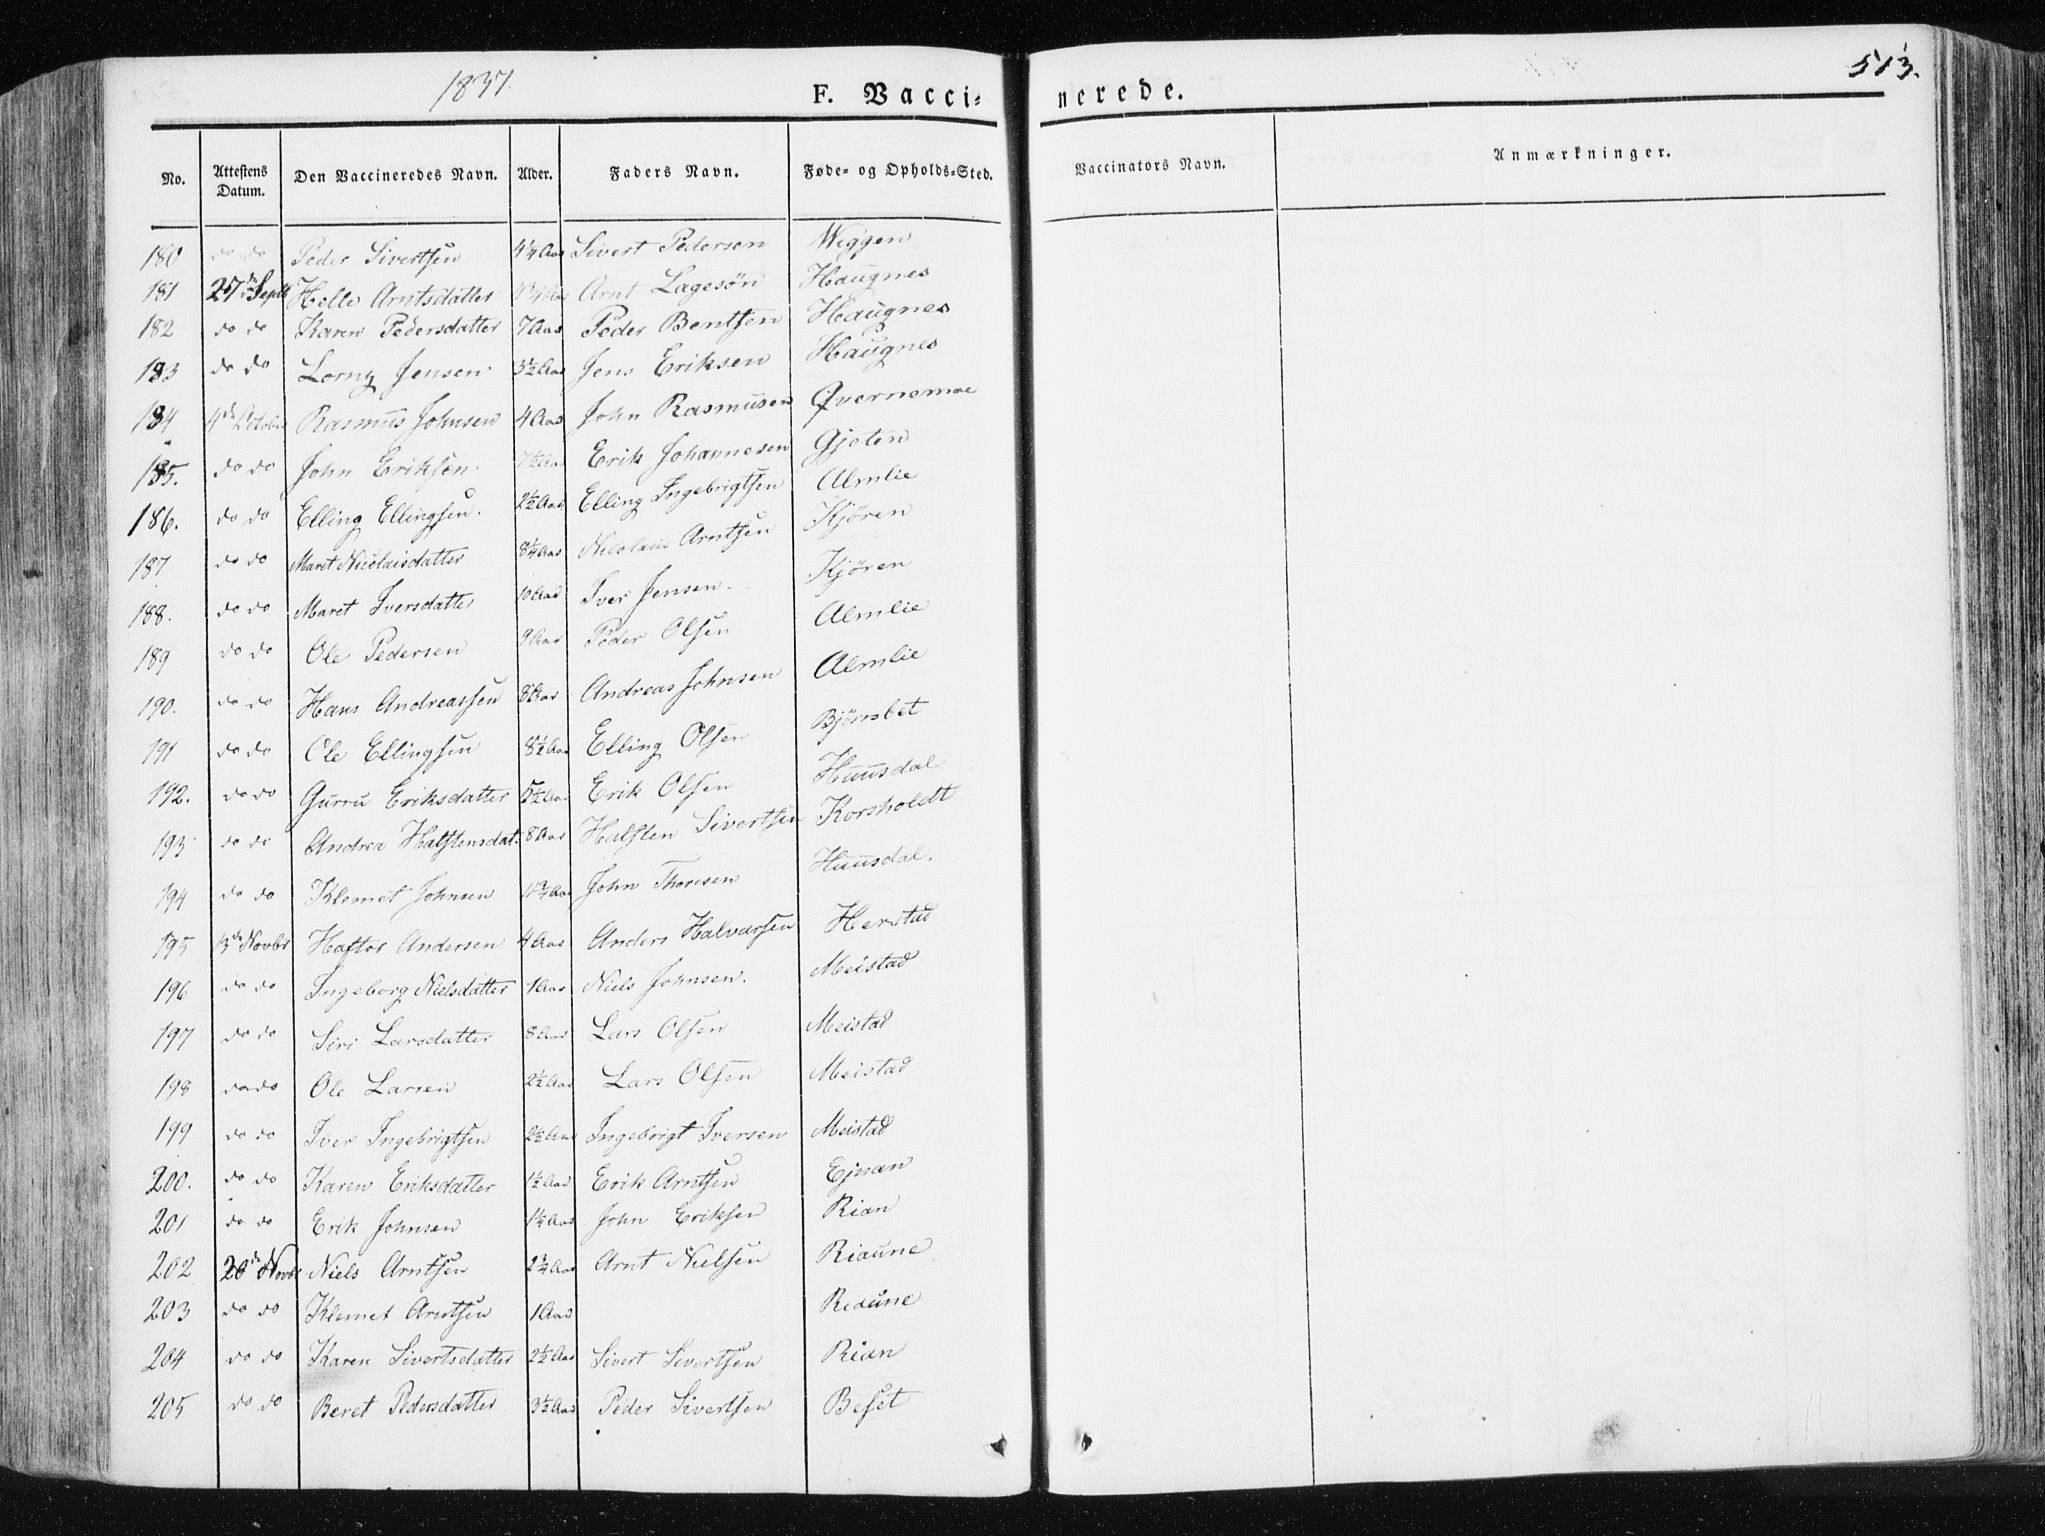 1837.
F. Vacci-
nerede.
513.
No. Attestens Datum. Den Vaccineredes Navn. Alder. Faders Navn. Føde- og Opholds-Sted. Vaccinators Navn. Anmærkninger.
180 do do Peder Sivertsen 4¼ Aar Sivert Pedersen Wiggen
181 27de Septb Helle Arntsdatter Aar Arnt Lagesøn Haugnes
182 do do Karen Pedersdatter 7 Aar Peder Bentsen Haugnes
183 do do Lorny Jensen 3½ Aar Jens Eriksen Haugnes
184 4de October Rasmus Johnsen 4 Aar John Rasmusen Qvernemoe
185. do do John Eriksen. 7½ Aar Erik Johannesen Gjeten
186. do do Elling Ellingsen. 2½ Aar Elling Ingebrigtsen Almlie
187 do do Maret Nicolaisdatter 8¼ Aar Nicolaus Arntsen Kjøren
188. do do Maret Iversdatter 10 Aar Iver Jensen. Kjøren
189 do do Ole Pedersen 9 Aar Peder Olsen. Almlie
190. do do Hans Andreassen 8 Aar Andreas Johnsen Almlie
191 do do Ole Ellingsen 8½ Aar Elling Olsen Bjørnsbet
192. do do Gurru Eriksdatter 5½ Aar Erik Olsen Huusdal
193 do do Andrea Halstensdat. 8 Aar Halsten Sivertsen Korsholdt
194 do do Klemet Johnsen Aar John Thoresen Huusdal.
195 3de Novbr Haftor Andersen 4 Aar Anders Halvarsen Herstad
196 do do Ingeborg Nielsdatter 1 Aar Niels Johnsen. Meistad
197 do do Siri Larsdatter 8 Aar Lars Olsen Meistad
198 do do Ole Larsen 2½ Aar Lars Olsen Meistad
199 do do Iver Ingebrigtsen 2½ Aar Ingebrigt Iversen Meistad
200. do do Karen Eriksdatter 1½ Aar Erik Arntsen Ejnan
201 do do Erik Johnsen 1¼ Aar John Eriksen Rian
202 20de Novbr Niels Arntsen 2¾ Aar Arnt Nielsen Riaune
203 do do Klemet Arntsen 1 Aar Riaune
204 do do Karen Sivertsdatter 2½ Aar Sivert Sivertsen Rian
205 do do Beret Pedersdatter 3½ Aar Peder Sivertsen Beset